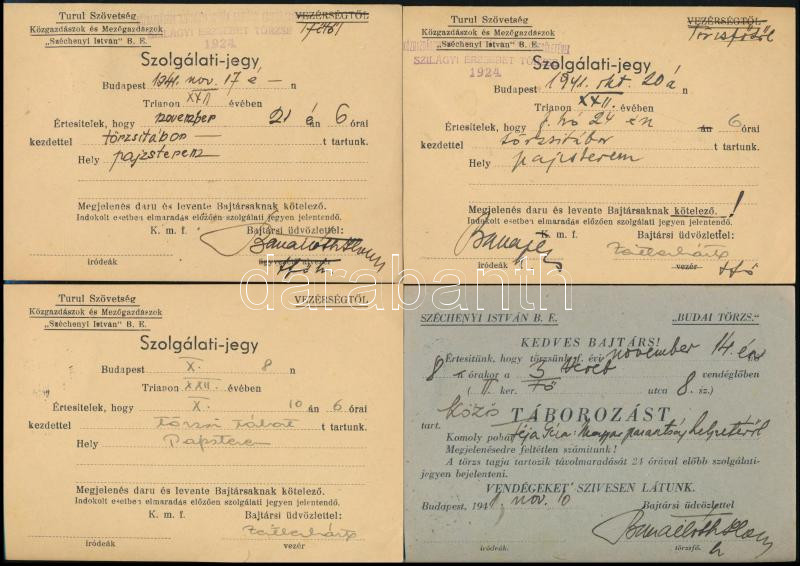 Turul Szövetség
Közgazdászok és Mezőgazdászok
„Széchenyi István" B. E.
VEZÉRSÉGTŐL
SZILÁGYI ERZSÉBET TÖRZSE
1924.
Szolgálati-jegy
Budapest 1941. nov. 17 é n
Trianon XXII évében
Értesítelek, hogy november 21 é án 6 órai
kezdettel törzsitábor t tartunk.
Hely pajzsterem
Megjelenés daru és levente Bajtársaknak kötelező.
Indokolt esetben elmaradás előzően szolgálati jegyen jelentendő.
K. m. f. Bajtársi üdvözlettel:
íródeák ügyvezető alvezér
Turul Szövetség
Közgazdászok és Mezőgazdászok
„Széchenyi István" B. E.
VEZÉRSÉGTŐL
Törzsfőtől
SZILÁGYI ERZSÉBET
1924.
Szolgálati-jegy
Budapest 1941. okt. 20 á n
Trianon XXII. évében
Értesítelek, hogy f. hó 24 én án 6 órai
kezdettel törzsitábor t tartunk.
Hely pajzsterem
Megjelenés daru és levente Bajtársaknak kötelező. !
Indokolt esetben elmaradás előzően szolgálati jegyen jelentendő.
K. m. f. Bajtársi üdvözlettel:
íródeák vezér
Turul Szövetség
Közgazdászok és Mezőgazdászok
„Széchenyi István" B. E.
VEZÉRSÉGTŐL
Szolgálati-jegy
Budapest X. 8 n
Trianon XXII. évében
Értesítelek, hogy X. 10 án 6 órai
kezdettel törzsi tábort t tartunk.
Hely Papsterem
Megjelenés daru és levente Bajtársaknak kötelező.
Indokolt esetben elmaradás előzően szolgálati jegyen jelentendő.
K. m. f. Bajtársi üdvözlettel:
íródeák vezér
SZÉCHENYI ISTVÁN B. E. „BUDAI TÖRZS."
KEDVES BAJTÁRS!
Értesítünk, hogy törzsünk f. évi november 14. én
8 órakor a 3 vendéglőben
( II ker. Fő utca 8. sz.)
Közös TÁBOROZÁST
tart.
Komoly pohár Féja Géza: Magyar parasztság helyzetéről
Megjelenésedre feltétlen számítunk!
A törzs tagja tartozik távolmaradását 24 órával előbb szolgálati-
jegyen bejelenteni.
VENDÉGEKET SZIVESEN LÁTUNK.
Budapest, 194 nov. 10 Bajtársi üdvözlettel
íródeák. törzsfő.
darabanth